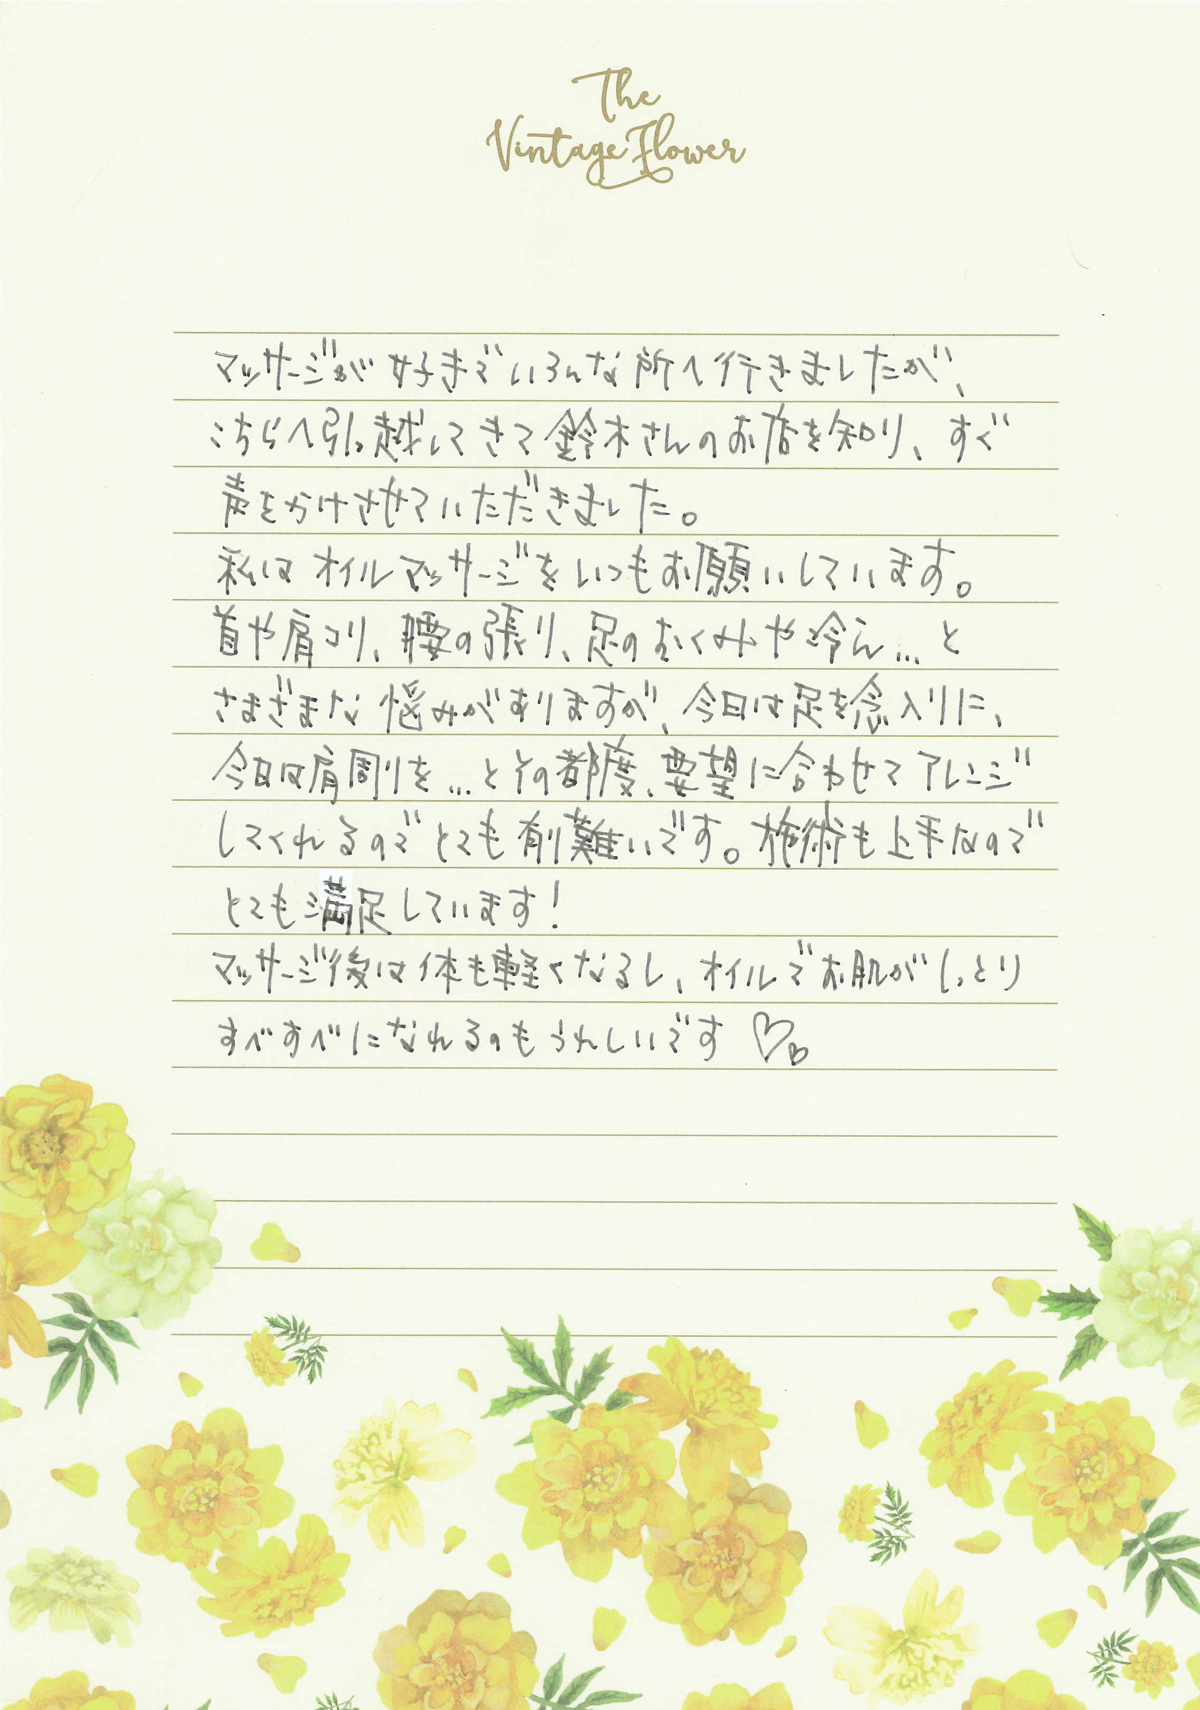 The
Vintage Flower
マッサージが好きでいろんな所へ行きましたが、
こちらへ引っ越してきて鈴木さんのお店を知り、すぐ
声をかけさせていただきました。
私はオイルマッサージをいつもお願いしています。
首や肩コリ、腰の張り、足のむくみや冷え…と
さまざまな悩みがありますが、今日は足を念入りに、
今日は肩周りを…とその都度、要望に合わせてアレンジ
してくれるのでとても有難いです。施術も上手なので
とても満足しています！
マッサージ後は体も軽くなるし、オイルでお肌がしっとり
すべすべになれるのもうれしいです♡♡